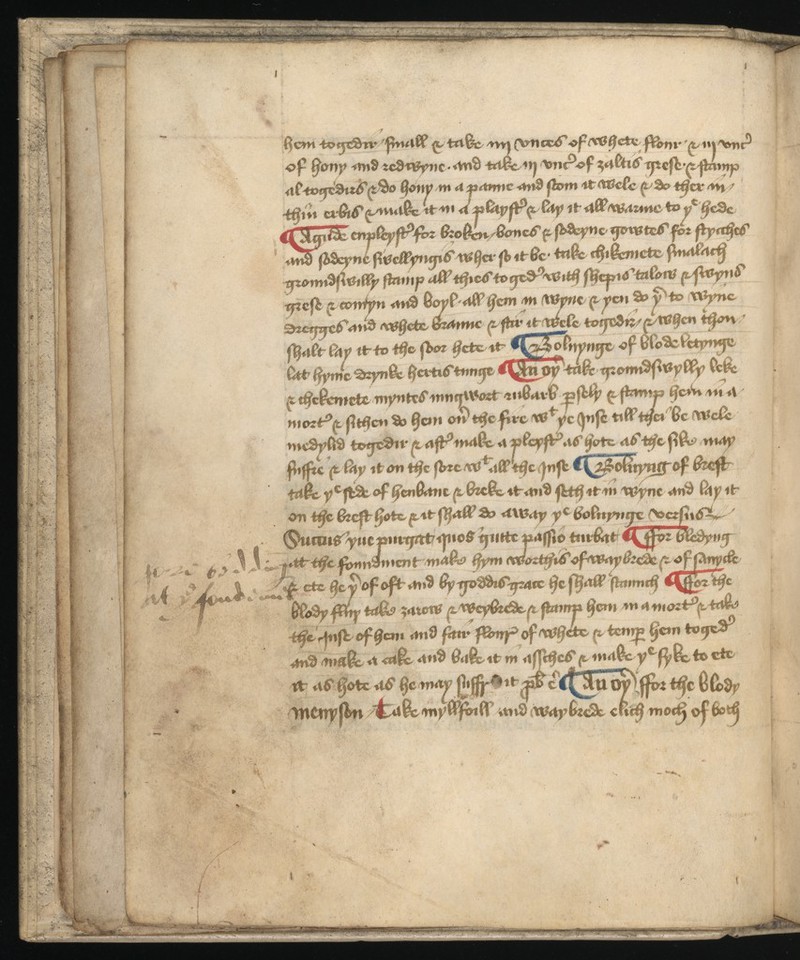 hem togedir small & take iiij vnces of whete flour & iij vnc̄
of hony and redwyne. and take iij vnc̄ of zaltis grese & stamp
al togedirs & do hony in a panne and scom it wele & do ther in
thin erbis & make it in a playstr̄ & lay it all warme to yͤ hede
A gude enpleystr̄ for broken bones & sodeyne gowtes for styches
and sodeyne swellyngis wher so it be. take chikemete smalach
groundswilly stamp all thies togedr̄ with shepis talow & swyns
grese & comyn and boyl all hem in wyne & yen do yͬ to wyne
dregges and whete branne & stir it wele togedir & when thou
shalt lay it to the soor hete it Bolnynge of blode letynge
lat hyme drynke hertis tunge An oyͬ take groundswylly leke
& chekemete myntes mugwort rubarb ꝑsely & stamp hem in a
mortr̄ & sithen do hem on̄ the fire wᵗ ye Juse till thei be wele
medylid togedir & aftr̄ make a pleystr̄ as hote as the sike may
suffre & lay it on the sore wᵗ all the Juse Bolnyng of brest
take yͤ sede of henbane & breke it and seth it in wyne and lay it
on the brest hote & it shall do away yͤ bolnynge versus
Succus yue purgat quos gutte passio turbat ffor bledyng
at the foundment make hym worthis of waybrede & of sanycle
& ete he yͬ of oft and by goddis grace he shall staunch ffor the
blody flux take zarow & weybrede & stamp hem in a mortr̄ & take
the Juse of hem and fair flour of whete & temꝑ hem togedr̄
and make a cake and bake it in assches & make yͤ syke to ete
it as hote as he may suffr it An oyͬ ffor the blody
menyson Take myllfoill and waybrede elich moch of both